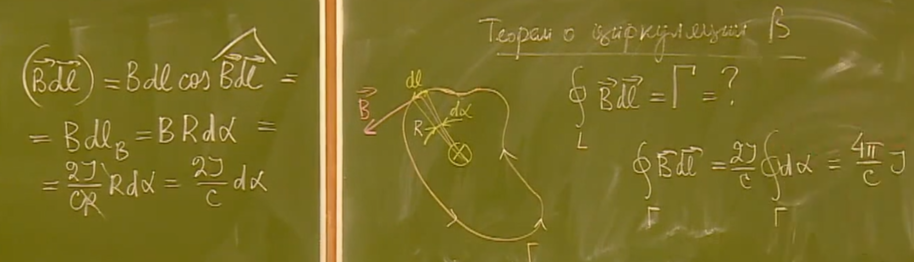 (B⃗dl⃗) = Bdl cos B⃗dl⃗ =
= Bdl_B = BRdα =
= 2J/CR Rdα = 2J/c dα
Теорема о циркуляции B⃗
∮_L B⃗dl⃗ = Γ = ?
∮_Γ B⃗dl⃗ = 2J/c ∮_Γ dα = 4π/c J
dl
B⃗
dα
R
Γ